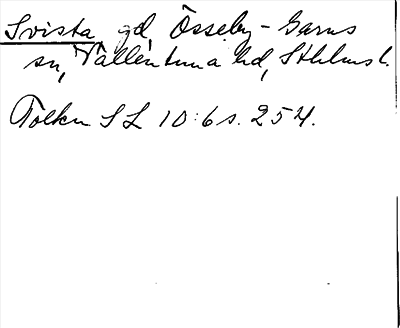 Svista, gd, Össeby-Garns
sn, Vallentuna hd, Sthlms l.
Tolkn SL 10:6 s. 254.